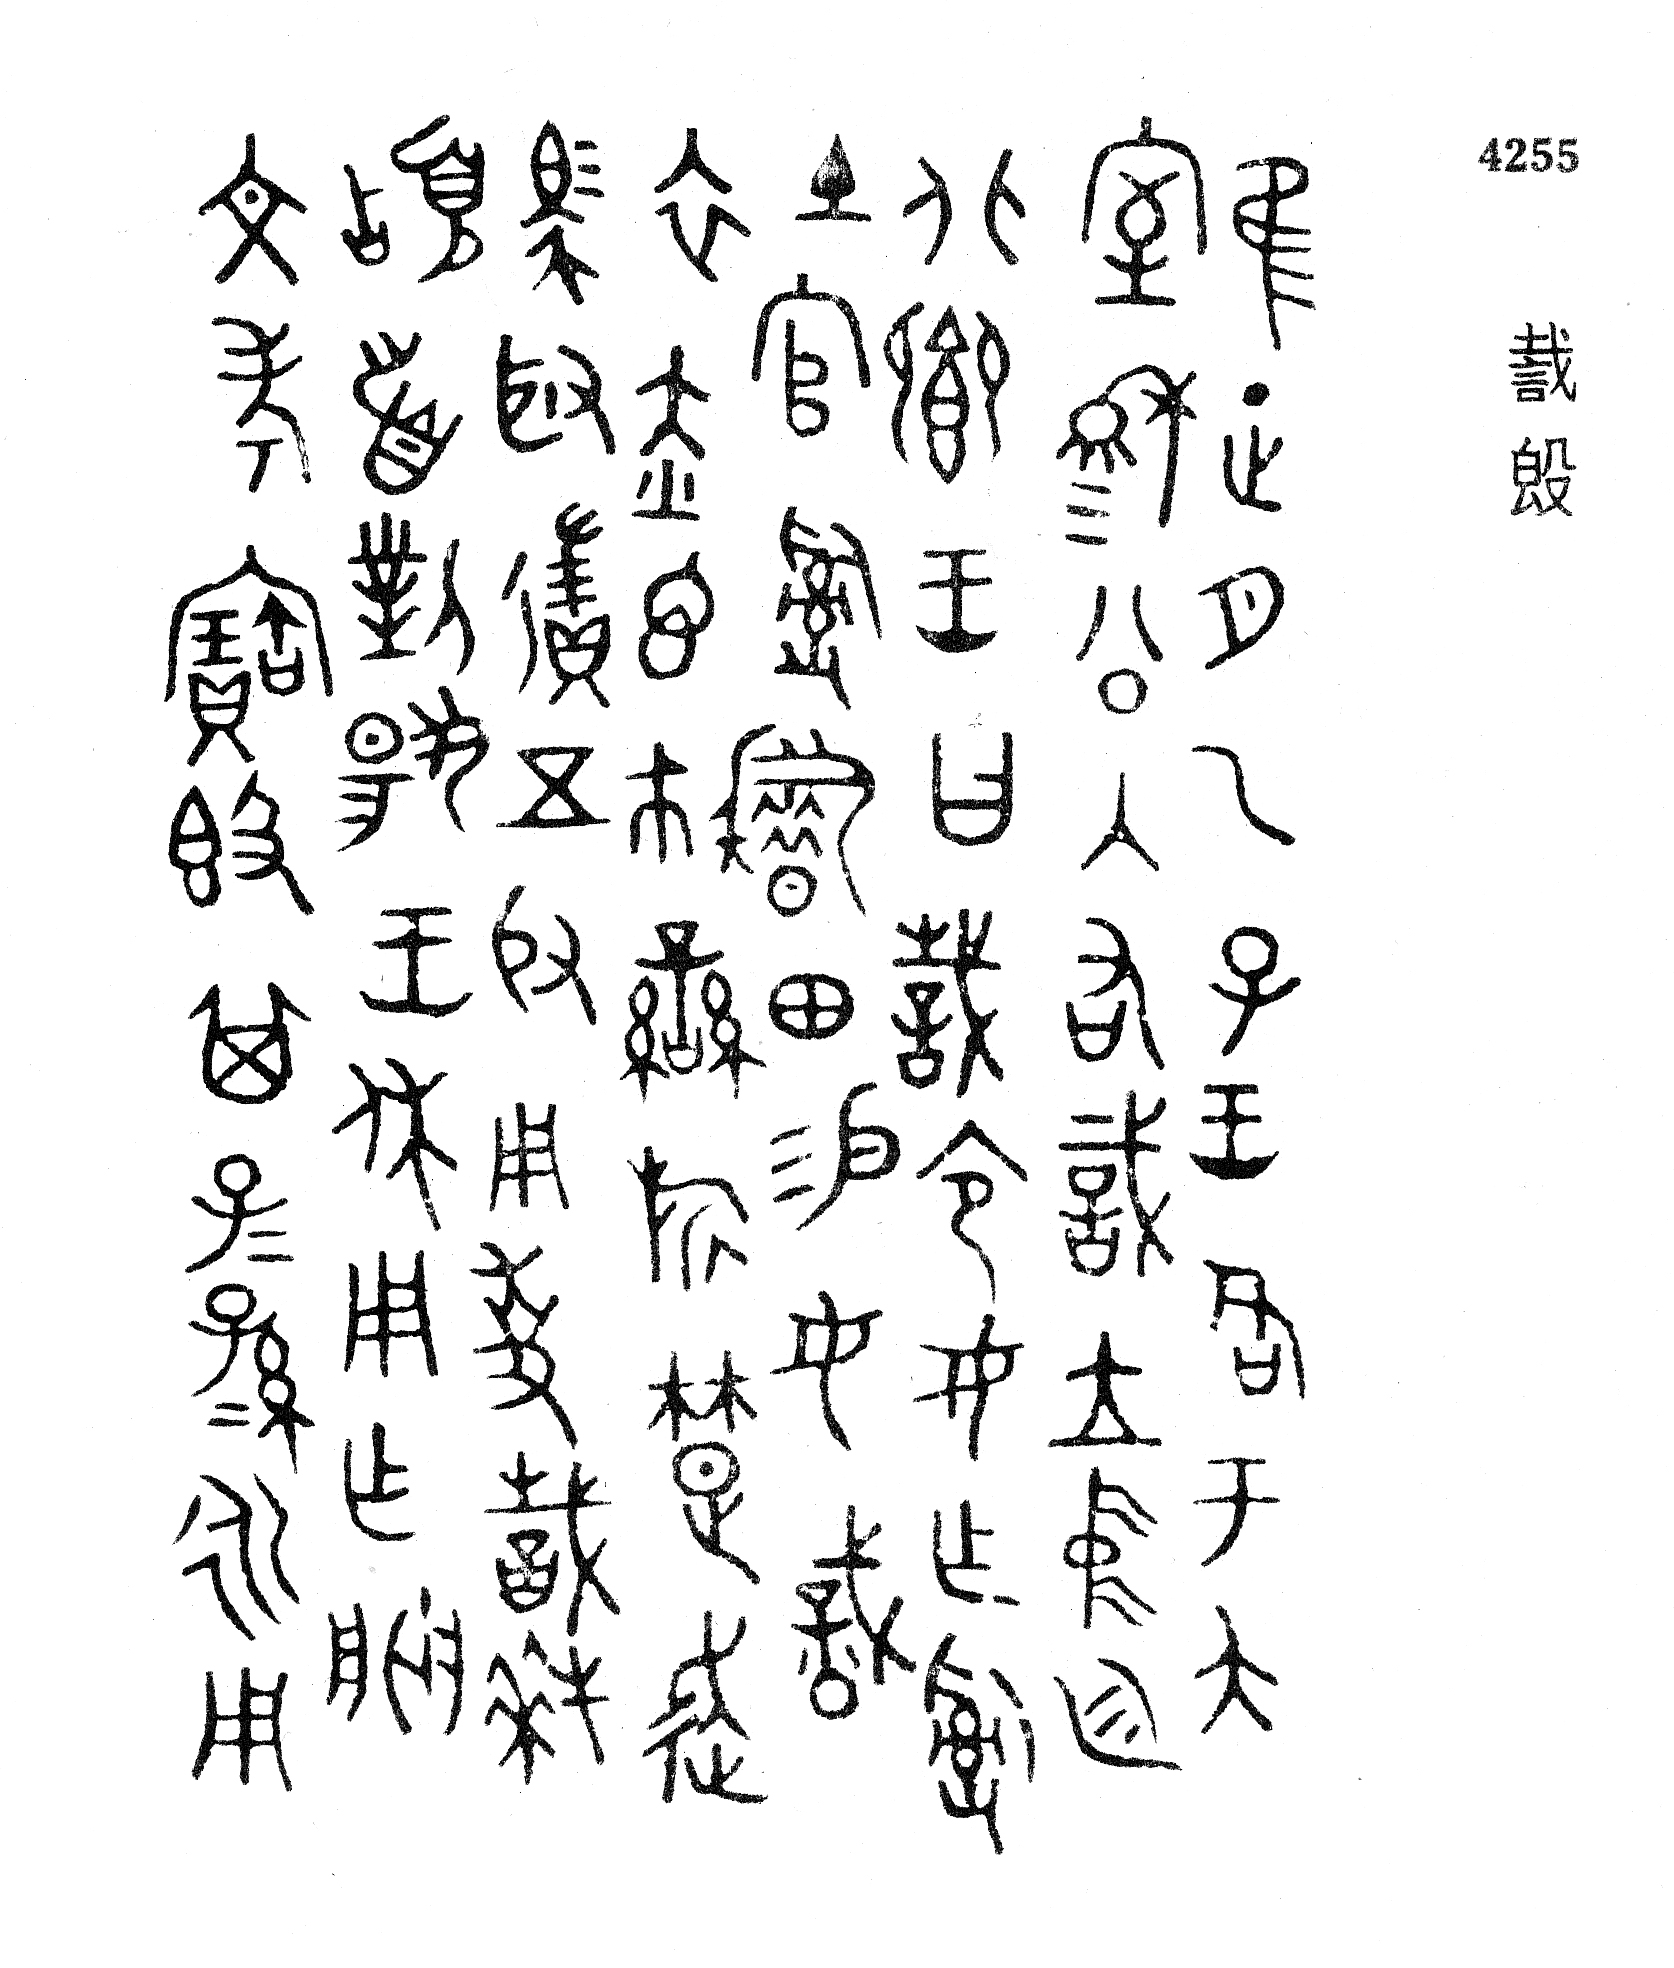 4255
𣪘
隹正月乙子王各于大
室穆公入右立中廷
北卿王曰令女乍𤔲
土官𤔲耤田易女戠
衣赤巿䜌旂楚走
馬取五寽用事拜
𩒨首對揚王休用乍朕
文考寶𣪘其子=孫=永用